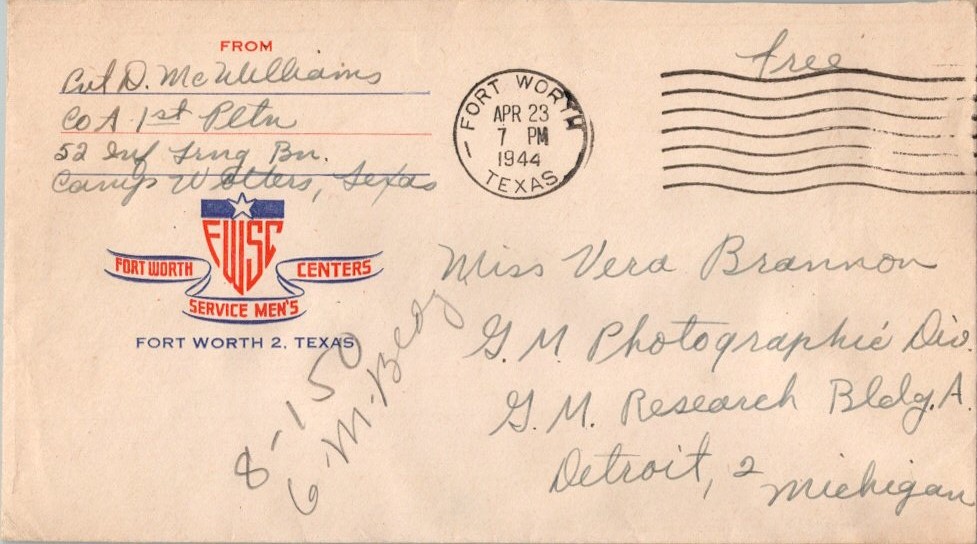 FROM
Pvt D. McWilliams
Co A 1st Pltn
52 Inf Trng Bn.
Camp Wolters, Texas
FWSC
FORT WORTH
CENTERS
SERVICE MEN'S
FORT WORTH 2, TEXAS
FORT WORTH
APR 23
7 PM
1944
TEXAS
free
Miss Vera Brannon
G.M. Photographic Div.
G.M. Research Bldg. A.
Detroit, 2
Michigan
8-150